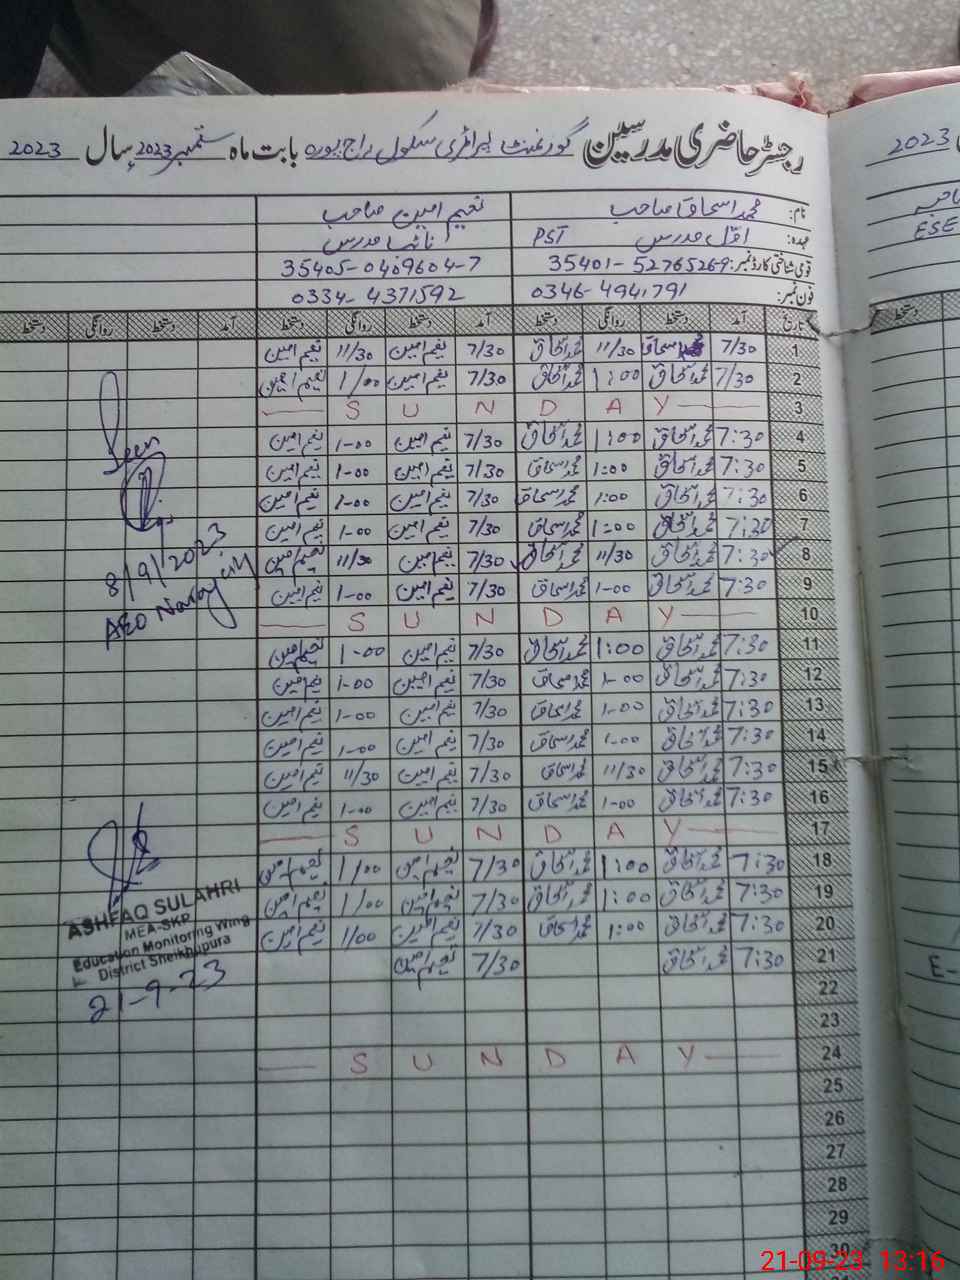 رجسٹر حاضری مدرسین گورنمنٹ پرائمری سکول راج پورہ بابت ماہ ستمبر 2023 سال 2023
2023
نام: محمد اسحاق صاحب نعیم امین صاحب
عہدہ: اوّل مدرس PST مدرس
ESE
قومی شناختی کارڈ نمبر: 35401-52765269 35405-0409604-7
فون نمبر: 0346-4941791 0334-4371592
تاریخ آمد دستخط روانگی دستخط آمد دستخط روانگی دستخط آمد دستخط روانگی دستخط
1 7/30 محمد اسحاق 11/30 محمد اسحاق 7/30 نعیم امین 11/30 نعیم امین
2 7/30 محمد اسحاق 1:00 محمد اسحاق 7/30 نعیم امین 1/00 نعیم امین
3 S U N D A Y
4 7:30 محمد اسحاق 1:00 محمد اسحاق 7/30 نعیم امین 1-00 نعیم امین
5 7:30 محمد اسحاق 1:00 محمد اسحاق 7/30 نعیم امین 1-00 نعیم امین
6 7:30 محمد اسحاق 1:00 محمد اسحاق 7/30 نعیم امین 1-00 نعیم امین
7 7:30 محمد اسحاق 1:00 محمد اسحاق 7/30 نعیم امین 1-00 نعیم امین
8 7:30 محمد اسحاق 11/30 محمد اسحاق 7/30 نعیم امین 11/30 نعیم امین
9 7:30 محمد اسحاق 1-00 محمد اسحاق 7/30 نعیم امین 1-00 نعیم امین
10 S U N D A Y
11 7:30 محمد اسحاق 1:00 محمد اسحاق 7/30 نعیم امین 1-00 نعیم امین
12 7:30 محمد اسحاق 1-00 محمد اسحاق 7/30 نعیم امین 1-00 نعیم امین
13 7:30 محمد اسحاق 1-00 محمد اسحاق 7/30 نعیم امین 1-00 نعیم امین
14 7:30 محمد اسحاق 1-00 محمد اسحاق 7/30 نعیم امین 1-00 نعیم امین
15 7:30 محمد اسحاق 11/30 محمد اسحاق 7/30 نعیم امین 11/30 نعیم امین
16 7:30 محمد اسحاق 1-00 محمد اسحاق 7/30 نعیم امین 1-00 نعیم امین
17 S U N D A Y
18 7:30 محمد اسحاق 1:00 محمد اسحاق 7/30 نعیم امین 1/00 نعیم امین
19 7:30 محمد اسحاق 1:00 محمد اسحاق 7/30 نعیم امین 1/00 نعیم امین
20 7:30 محمد اسحاق 1:00 محمد اسحاق 7/30 نعیم امین 1/00 نعیم امین
21 7:30 محمد اسحاق 7/30 نعیم امین
22
23
24 S U N D A Y
25
26
27
28
29
30
Seen
8/9/2023
AEO
ASHFAQ SULAHRI
MEA-SKP
Education Monitoring Wing
District Sheikhupura
21-9-23
21-09-23 13:16